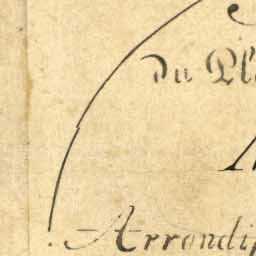 du Pl
Arrondi